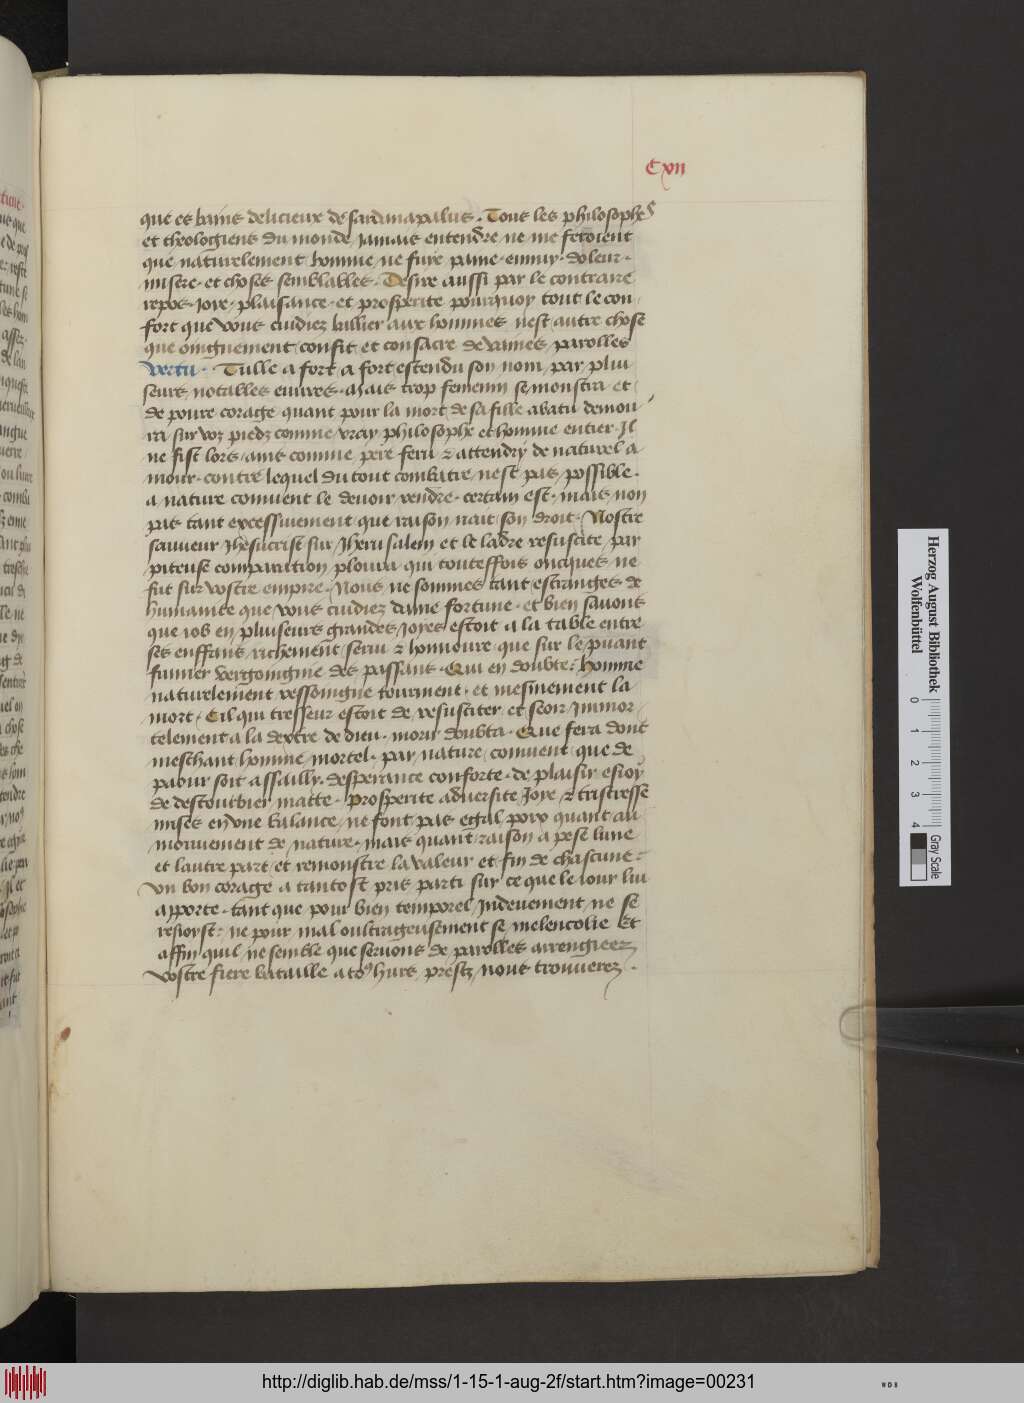 Cxii
que es bains delicieux de sardinapalus . Tous les philosophes
et theologiens du monde jamais entendre ne me feroient
que naturelement homme ne fuye paine . ennuy . doleur .
misere . et choses semblables . Desire aussi par le contraire
repos . joye . plaisance . et prosperite pourquoy tout le con
fort que vous cuidiez baillier aux hommes nest autre chose
que oingnement confit et consacre de vaines parolles
vertu . Tulle a fort a fort estendu son nom par plui
seurs notables euvres . Mais trop femenin se monstra et
de povre corage quant pour la mort de sa fille abatu demou
ra sur voz piedz comme vray philosophe et homme entier . Il
ne fist lors ains comme pere feru & attendry de naturel a
mour . contre lequel du tout combatre nest pas possible .
a nature convient le devoir rendre . certain est . mais non
pas tant excessivement que raison nait son droit . Nostre
sauveur Jhesucrist sur Jherusalem et le ladre resuscite par
piteuse comparation ploura qui touteffois oncques ne
fut sur vostre empire . Nous ne sommes tant estranges de
humanite que vous cuidiez dame fortune . et bien savons
que iob en pluiseurs grandes joyes estoit a la table entre
ses enffans richement servi & honnoure . que sur le puant
fumier vergoingnie des passans . Qui en doubte : homme
naturelement ressoingne tourment . et mesmement la
mort . Cil qui tresseur estoit de resusciter et seoir immor
telement a la dextre de dieu . morir doubta . Que fera dont
meschant homme mortel . par nature convient que de
paour soit assailly . desperance conforte . de plaisir esioy
de destourbier matte . Prosperite adversite joye & tristresse
mises en une balance ne font pas egal poix quant au
mouvement de nature . mais quant raison a pese lune
et lautre part et remonstre la valeur et fin de chascune :
un bon corage a tantost pris parti sur ce que le iour lui
apporte . tant que pour bien temporel indeuement ne se
resioyst : ne pour mal oultrageusement se melencolie Et
affin quil ne semble que servons de parolles arrengieez
vostre fiere bataille a to9 hurs prestz nous trouverez .
Herzog August Bibliothek
Wolfenbüttel
0 1 2 3 4
Gray Scale
http://diglib.hab.de/mss/1-15-1-aug-2f/start.htm?image=00231